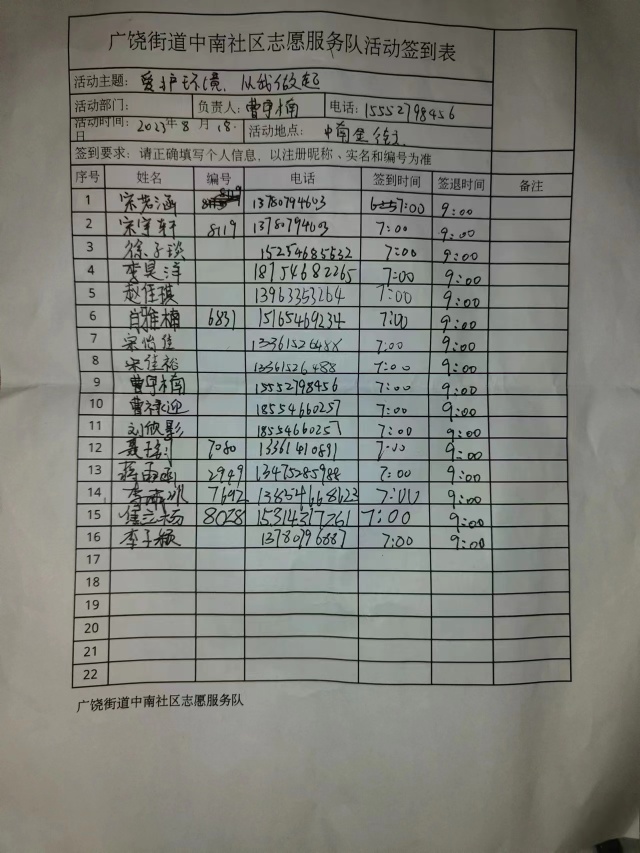 广饶街道中南社区志愿服务队活动签到表
活动主题: 爱护环境，从我做起
活动部门: 负责人: 曹宇楠 电话: 15552798456
活动时间: 2023年8月18日 活动地点: 中南金街
签到要求: 请正确填写个人信息，以注册昵称、实名和编号为准
序号 姓名 编号 电话 签到时间 签退时间 备注
1 宋若涵 8119 13780794603 7:00 9:00
2 宋宇轩 8119 13780794603 7:00 9:00
3 徐子琰 15254685532 7:00 9:00
4 李昊洋 18754682265 7:00 9:00
5 赵佳琪 13963353264 7:00 9:00
6 肖雅楠 6831 15165469234 7:00 9:00
7 宋怡佳 13361526488 7:00 9:00
8 宋佳裕 13361526488 7:00 9:00
9 曹宇楠 15552798456 7:00 9:00
10 曹禄迎 18554660257 7:00 9:00
11 刘欣影 18554660257 7:00 9:00
12 7080 13361410891 7:00 9:00
13 蒋雨函 2949 13475285988 7:00 9:00
14 7:00 9:00
15 8028 15314317261 7:00 9:00
16 李子颖 13780796887 7:00 9:00
17
18
19
20
21
22
广饶街道中南社区志愿服务队